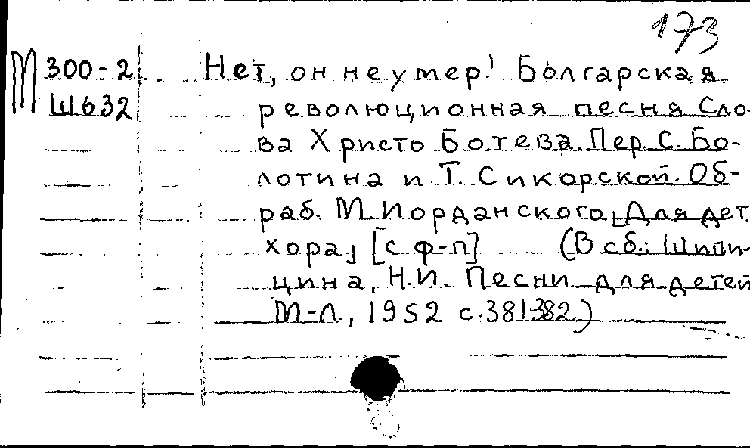 173
М 300-2 Нет, он не умер! Болгарская
Ш632 революционная песня Сло-
ва Христо Ботева. Пер. С. Бо-
лотина и Т. Сикорской. Об-
раб. М. Иорданского, [Для дет.
хора] [с ф-п] (В сб.: Шипи-
цина, Н.И. Песни для детей
М-Л., 1952 с. 381-382)